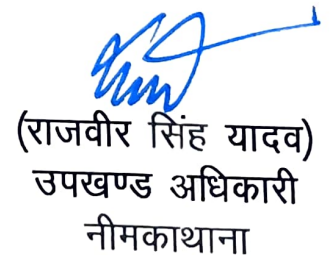 (राजवीर सिंह यादव)
उपखण्ड अधिकारी
नीमकाथाना